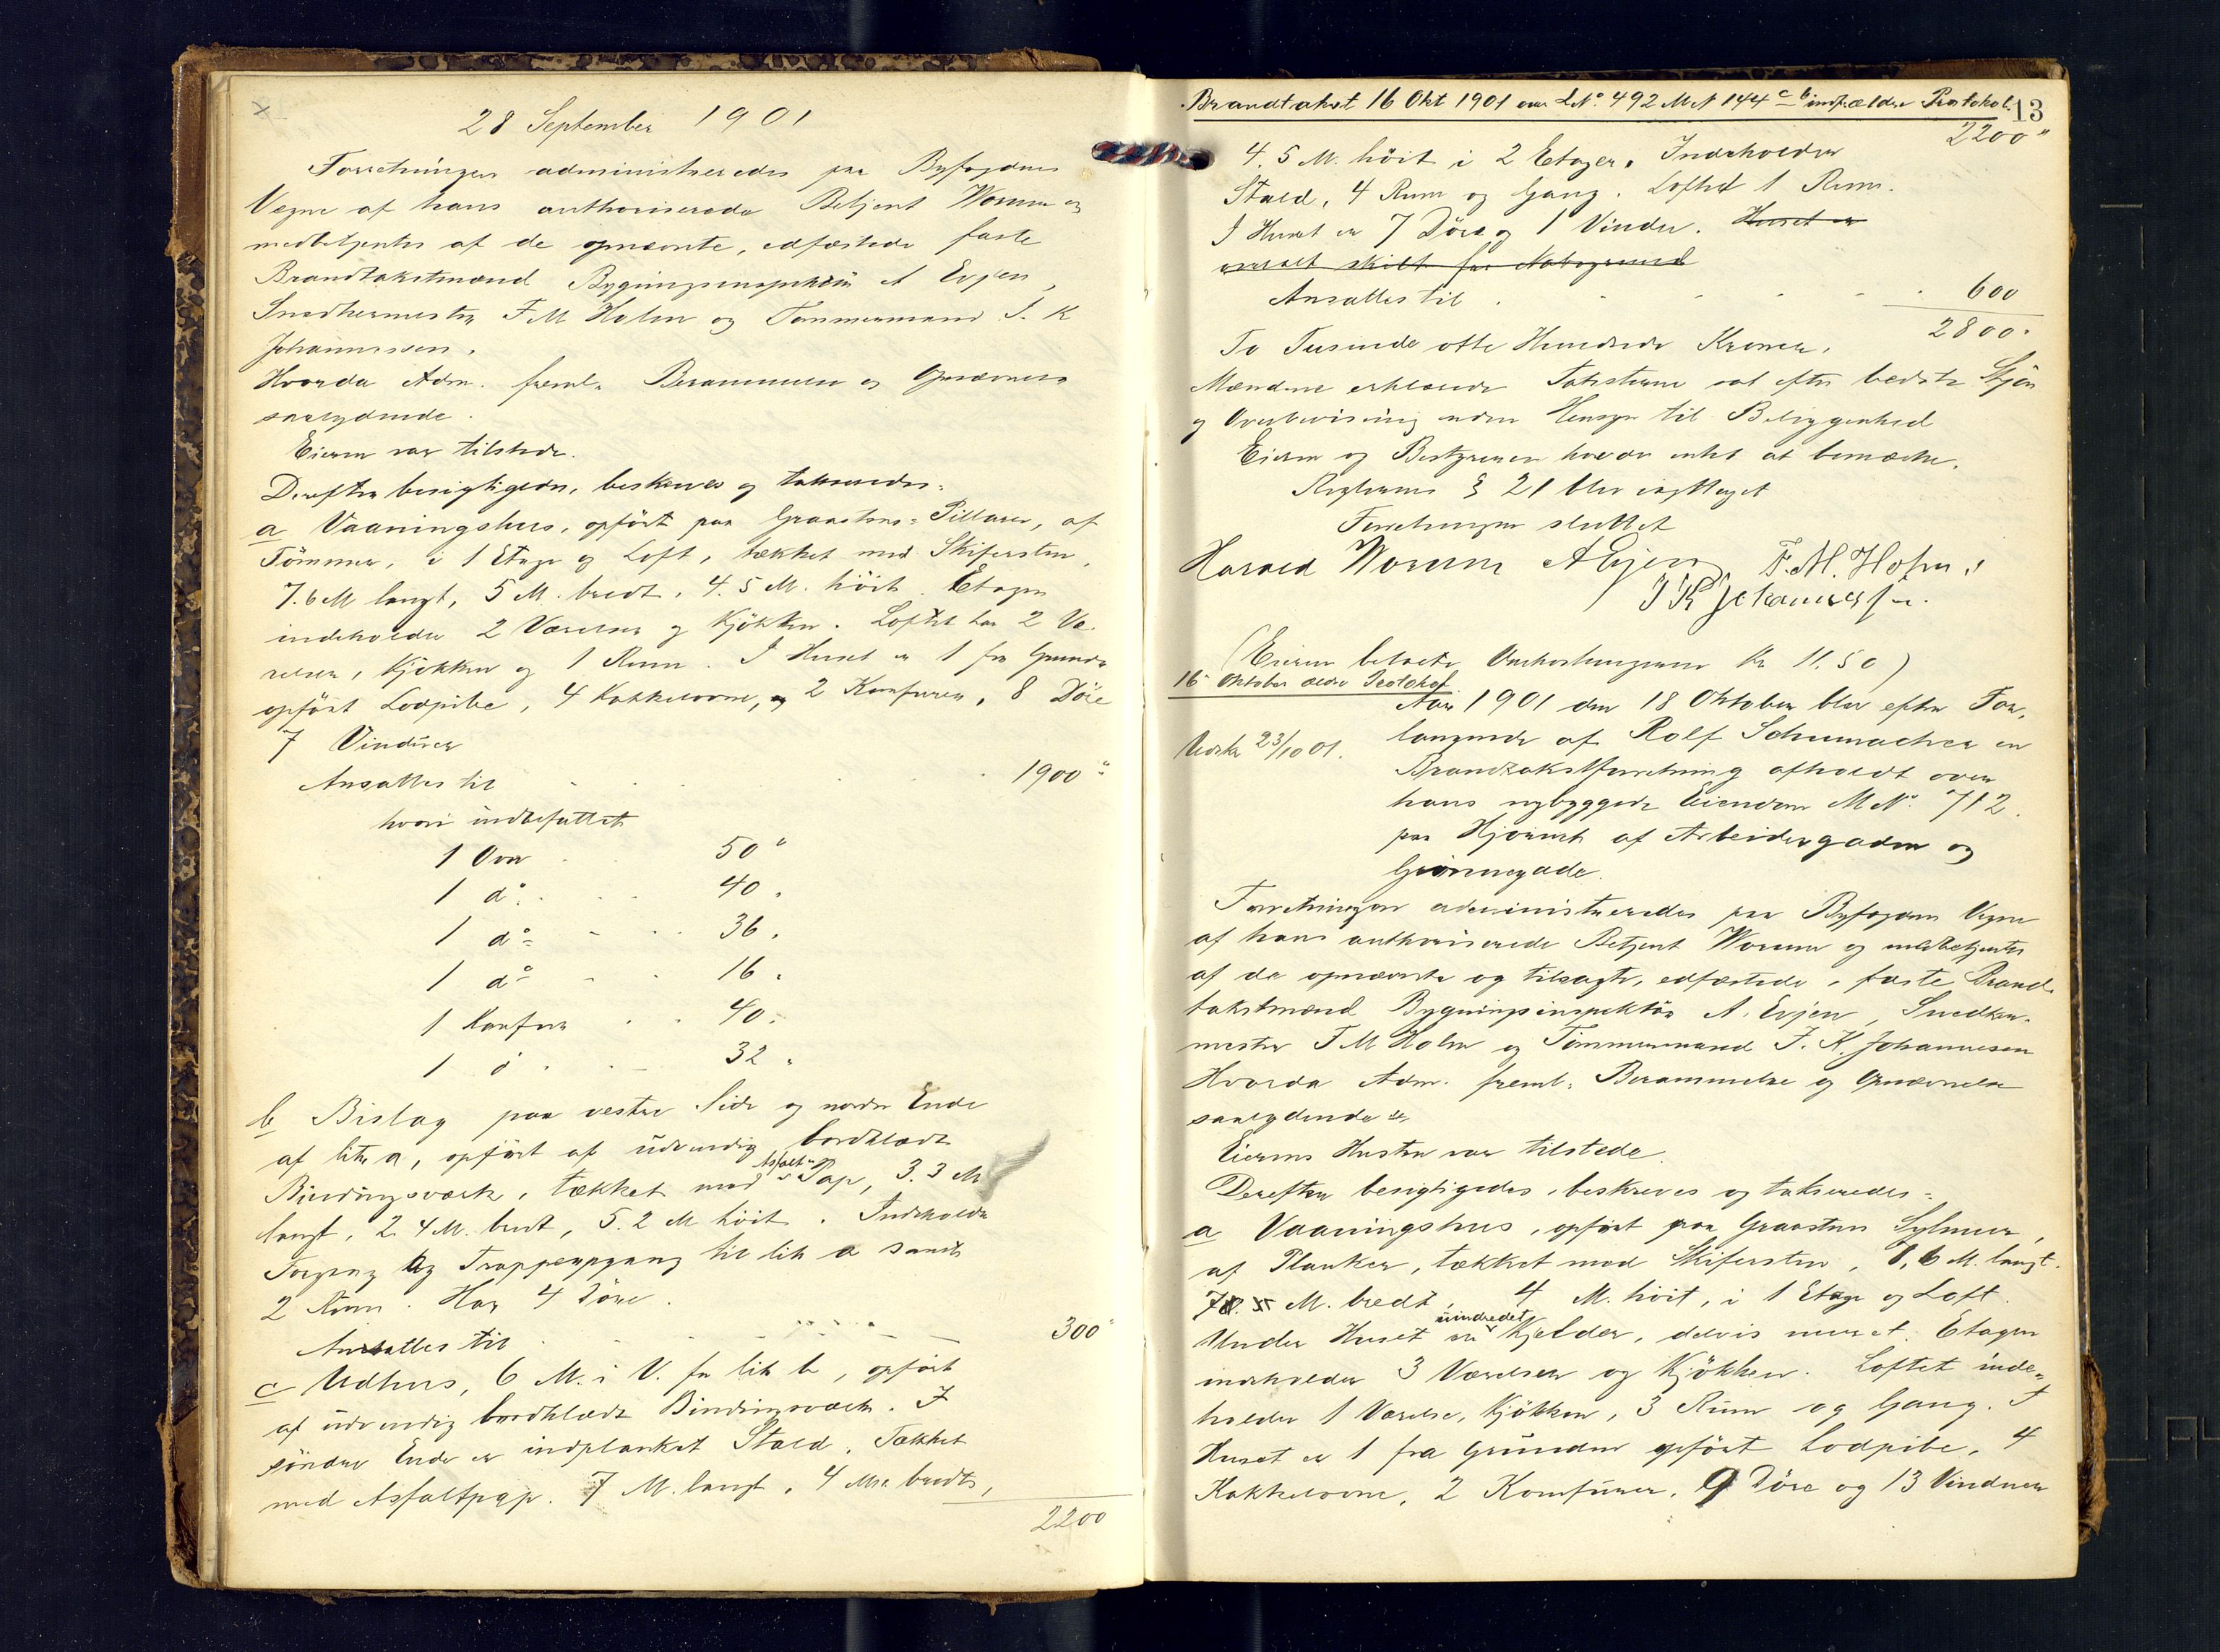 28 September 1901
Forretningen administreredes paa Byfogdens
Vegne af hans authoriserede Betjent Worum og
medbetjentes af de opnævnte, edfæstede faste
Brandtakstmænd Bygningsinspektör A Evjen,
Snedkermester F M Holm og Tömmermand J. K
Johannessen.
Hvorda Adm. freml. Berammelse og Opnævnelse
saalydende.
Eieren var tilstede.
Derefter besigtigedes, beskreves og takseredes:
a Vaaningshus, opfört paa Graastens-Pillarer, af
Tömmer, i 1 Etage og Loft, tækket med Skifersten,
7.6 M langt, 5 M. bredt, 4.5 M. höit. Etagen
indeholder 2 Værelser og Kjökken. Loftet har 2 Væ-
relser, Kjökken og 1 Rum. I Huset er 1 fra Grunden
opfört Lodpibe, 4 Kakkelovne, og 2 Komfurer, 8 Döre
7 Vinduer
Ansattes til 1900"
hvori indbefattet
1 Ovn 50"
1 do 40"
1 do 36"
1 do 16"
1 Komfur 40"
1 d 32"
b Bislag paa vestre Side og nordre Ende
af litr a, opfört af udvendig bordklædt
Bindingsværk, tækket med Asfalt-Pap, 3.3 M
langt, 2.4 M. bredt, 5.2 M höit. Indeholder
Forgang og Trappeopgang til litr a samt
2 Rum. Har 4 Döre.
Ansattes til 300"
c Udhus, 6 M. i V. for litr b, opfört
af udvendig bordklædt Bindingsværk. I
söndre Ende er indplanket Stald. Tækket
med Asfaltpap. 7 M. langt, 4 M. bredt,
2200
Brandtakst 16 Okt 1901 over LNo. 492 MN 144 c b indf. ældre Protokol. 13
2200"
4.5 M. höit i 2 Etager. Indeholder
Stald, 4 Rum og Gang. Loftet 1 Rum.
I Huset er 7 Döre og 1 Vindu. Huset er
overalt skilt fra Nabogrund
Ansattes til 600
2800"
To Tusinde otte Hundrede Kroner.
Mændene erklærede Taksterne sat efter bedste Skjön
og Overbevisning uden Hensyn til Beliggenhed
Eieren og Bestyreren havde intet at bemærke.
Reglernes § 21 blev iagttaget
Forretningen sluttet
Harald Worum A Evjen F. M. Holm.
J K Johannessen.
(Eieren betalte Omkostningerne Kr 11.50)
16 Oktober ældre Protokol
Aar 1901 den 18 Oktober blev efter For-
langende af Rolf Schumacher en
Udskr 23/10 01.
Brandtakstforretning afholdt over
hans nybyggede Eiendom MNo. 712.
paa Hjörnet af Arbeidergaden og
Grönnegade.
Forretningen administreredes paa Byfogdens Vegne
af hans authoriserede Betjent Worum og medbetjentes
af de opnævnte og tilsagte, edfæstede, faste Brand-
takstmænd Bygningsinspektör A. Evjen, Snedker-
mester F M Holm og Tömmermand J. K. Johannesen
Hvorda Adm. freml. Berammelse og Opnævnelse
saalydende
Eierens Hustru var tilstede.
Derefter besigtigedes, beskreves og takseredes:
a Vaaningshus, opfört paa Graastens Sylmur,
af Planker, tækket med Skifersten, 8,6 M. langt.
7 M. bredt, 4 M. höit, i 1 Etage og Loft.
Under Huset er uindredet Kjelder, delvis muret. Etagen
indeholder 3 Værelser og Kjökken. Loftet inde-
holder 1 Værelse, Kjökken, 3 Rum og Gang. I
Huset er 1 fra Grunden opfört Lodpibe, 4
Kakkelovne, 2 Komfurer, 9 Döre og 13 Vinduer